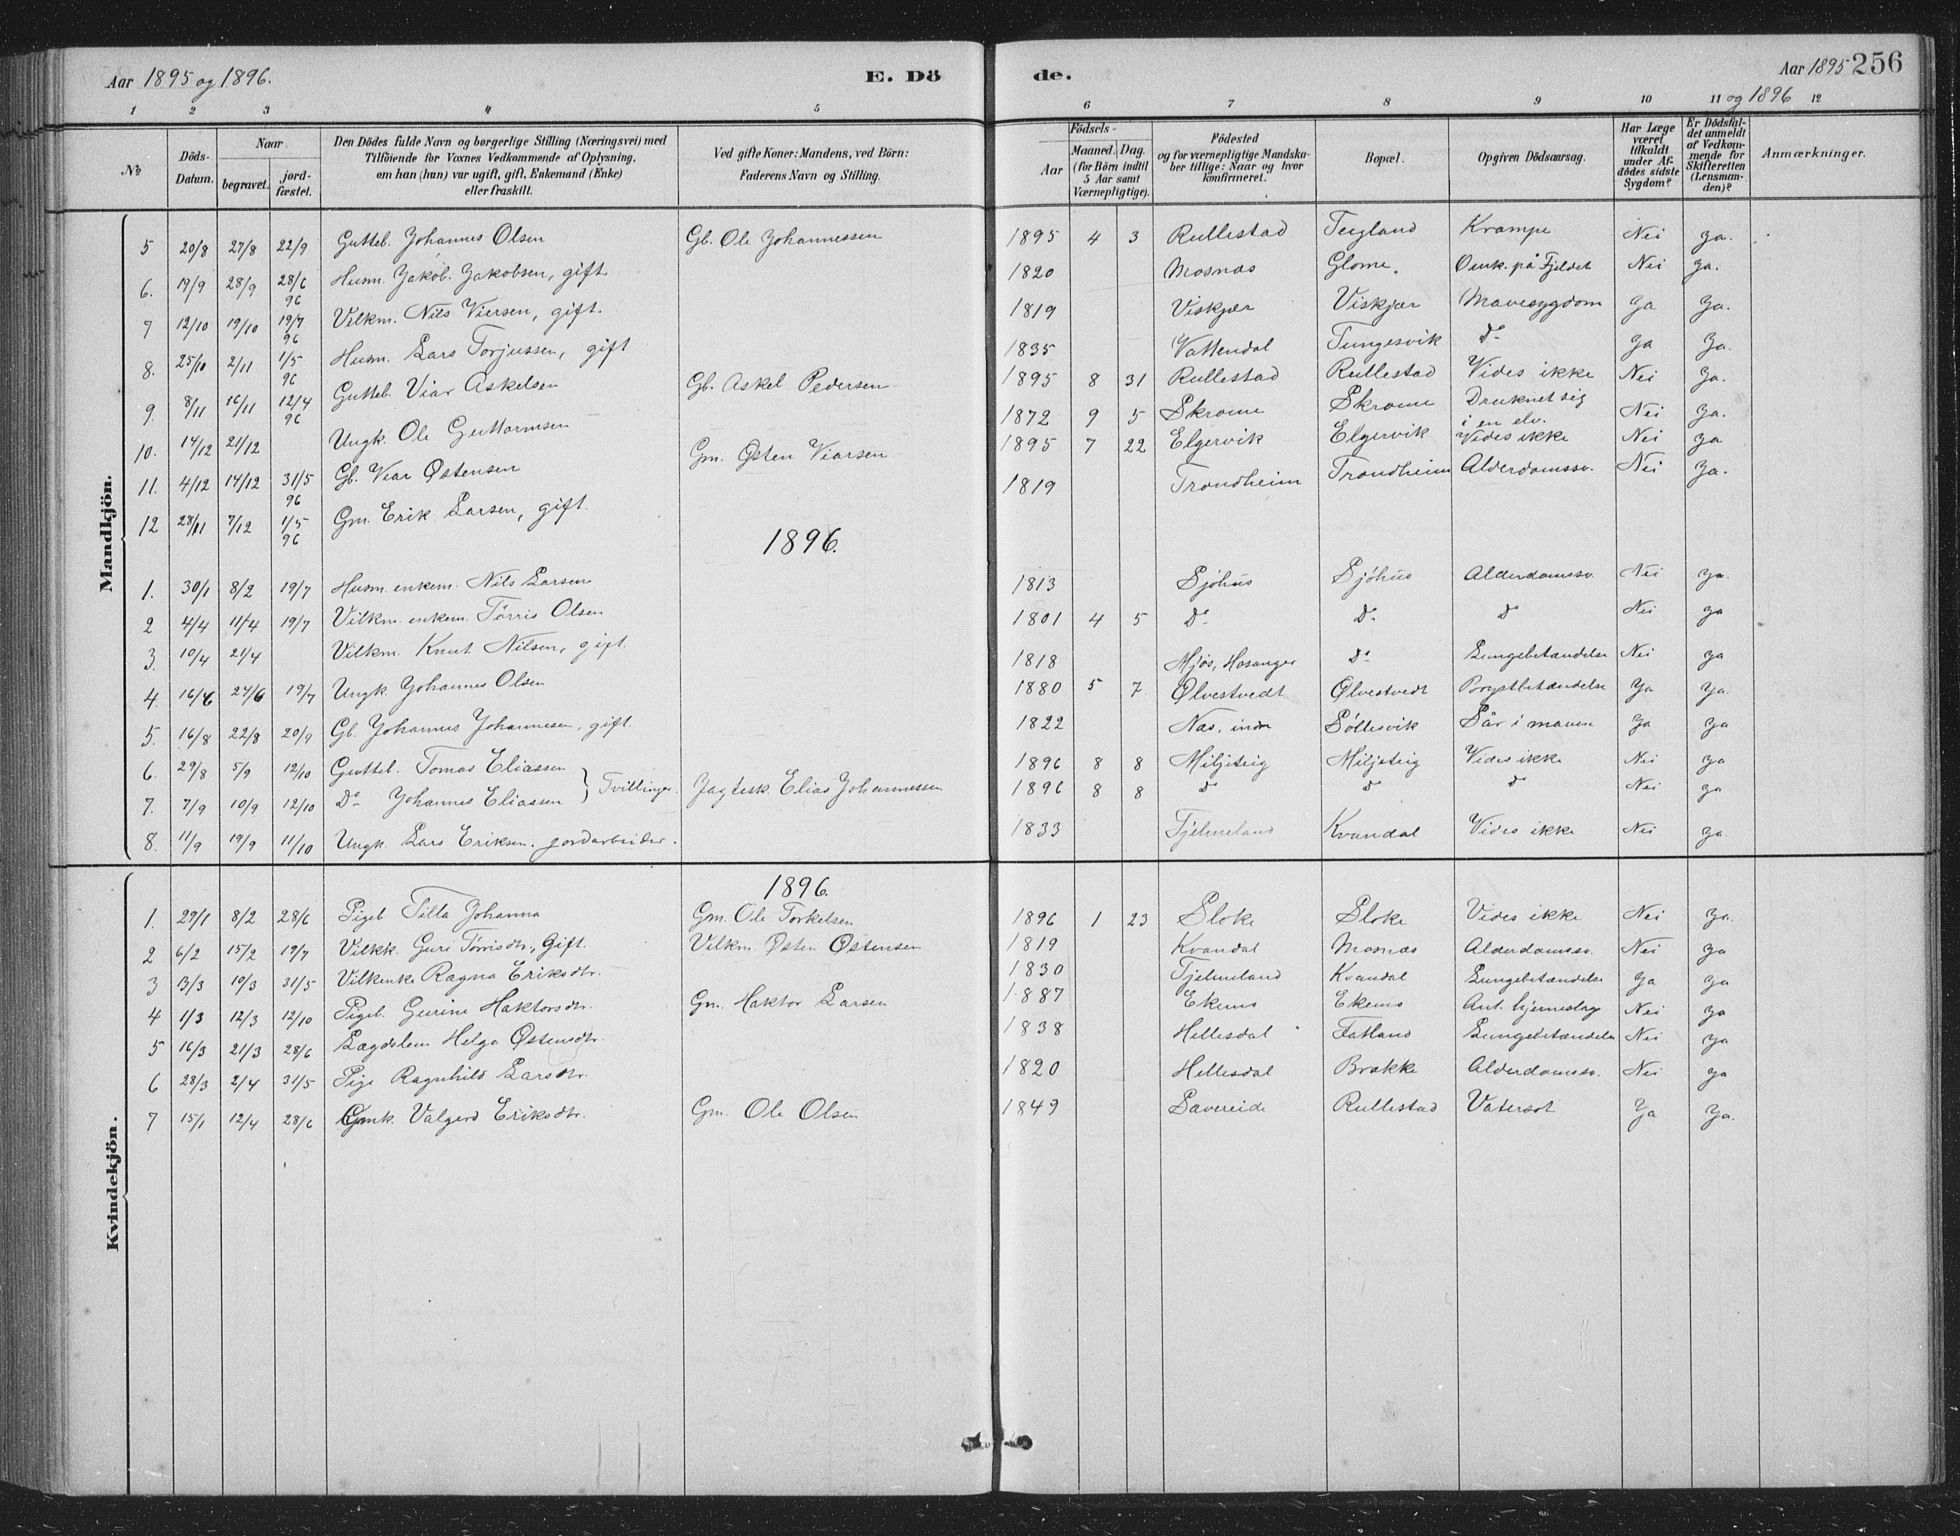 Aar 1895 og 1896.
E. Dö
de.
Aar 1895 256
og 1896
1 2 3 4 5 6 7 8 9 10 11 12
No
Döds-Datum.
Naar
begravet.
jord-fæstet.
Den Dödes fulde Navn og borgerlige Stilling (Næringsvei) med
Tilföiende for Voxnes Vedkommende af Oplysning,
om han (hun) var ugift, gift, Enkemand (Enke)
eller fraskilt.
Ved gifte Koner: Mandens, ved Börn:
Faderens Navn og Stilling.
Födsels-
Aar
Maaned. Dag.
(for Börn indtil
5 Aar samt
Værnepligtige).
Födested
og for værnepligtige Mandska-
ber tillige: Naar og hvor
konfirmeret.
Bopæl.
Opgiven Dödsaarsag.
Har Læge
været
tilkaldt
under Af-
dödes sidste
Sygdom?
Er Dödsfal-
det anmeldt
af Vedkom-
mende for
Skifteretten
(Lensman-
den)?
Anmærkninger.
Mandkjön.
5 20/8 27/8 22/9 Gutteb. Johannes Olsen Gb. Ole Johannessen 1895 4 3 Rullestad Teigland Krampe Nei Ja.
6. 19/9 28/9 28/6 96 Husm. Jakob Jakobsen, gift. 1820 Mosnæs Glome. Omk. på Fjeldet Nei Ja.
7 12/10 19/10 19/7 96 Vilkm. Nils Viersen, gift. 1819 Viskjær Viskjær Mavesygdom Ja Ja.
8. 25/10 2/11 1/5 96 Husm. Lars Torjussen, gift 1835 Vattendal Tungesvik Do Ja Ja.
9. 8/11 16/11 12/4 96 Gutteb Viar Askelsen Gb. Askel Pedersen 1895 8 31 Rullestad Rullestad Vides ikke Nei Ja.
10. 14/12 21/12 Ungk. Ole Guttormsen 1872 9 5 Skromme Skromme Druknet sig i en elv. Nei Ja.
11. 4/12 14/12 31/5 96 Gb. Viar Østensen Gm. Østen Viarsen 1895 7 22 Elgervik Elgervik Vides ikke Nei Ja
12 28/11 7/12 1/5 96 Gm. Erik Larsen, gift. 1819 Trondheim Trondheim Alderdomssv. Nei Ja.
1896.
1. 30/1 8/2 19/7 Husm. enkem. Nils Larsen 1813 Sjöhus Sjöhus Alderdomssv. Nei Ja.
2 4/4 11/4 19/7 Vilkm. enkem. Tørris Olsen 1801 4 5 Do Do Do Nei Ja
3. 10/4 21/4 Vilkm. Knut Nilsen, gift. 1818 Mjøs, Hosanger Do Lungebetændelse Nei Ja
4. 16/6 24/6 19/7 Ungk. Johannes Olsen 1880 5 7 Ølvestvedt Ølvestvedt Brystbetændelse Ja Ja.
5. 16/8 22/8 20/9 Gb. Johannes Johannesen, gift. 1822 Næs, indre Söllesvik Sår i maven Ja Ja
6. 29/8 5/9 12/10 Gutteb. Tomas Eliassen } Tvillinger. Jagtesk. Elias Johannessen 1896 8 8 Miljeteig Miljeteig Vides ikke Nei Ja
7. 7/9 10/9 12/10 Do Johannes Eliassen 1896 8 8 Do Do Do Nei Ja
8. 11/9 19/9 11/10 Ungk. Lars Eriksen, jordarbeider. 1833 Tjelmeland Kvandal Vides ikke Nei Ja.
Kvindekjön.
1896.
1. 29/1 8/2 28/6 Pigeb Tilla Johanna Gm. Ole Torkelsen 1896 1 23 Sloke Sloke Vides ikke Nei Ja.
2 6/2 15/2 19/7 Vilkk. Guri Tørrisdtr., Gift. Vilkm. Østen Østensen 1819 Kvandal Mosnæs Alderdomssv. Nei Ja
3 13/3 19/3 31/5 Vilkenke Ragna Eriksdtr. 1830 Tjelmeland Kvandal Lungebetændelse Ja Ja
4 1/3 12/3 12/10 Pigeb. Gurine Haktorsdtr. Gm. Haktor Larsen 1887 Ekenes Ekenes Ant. hjerneslag Nei Ja
5 16/3 21/3 28/6 Lægdslem Helga Østensdtr. 1838 Hellesdal Fatland Lungebetændelse Nei Ja
6 28/3 2/4 31/5 Pige Ragnhild Larsdtr. 1820 Hellesdal Brekke Alderdomssv. Nei Ja
7 15/1 12/4 28/6 Gmk. Valgerd Eriksdtr. Gm. Ole Olsen 1849 Sævereide Rullestad Vatersot Ja Ja.